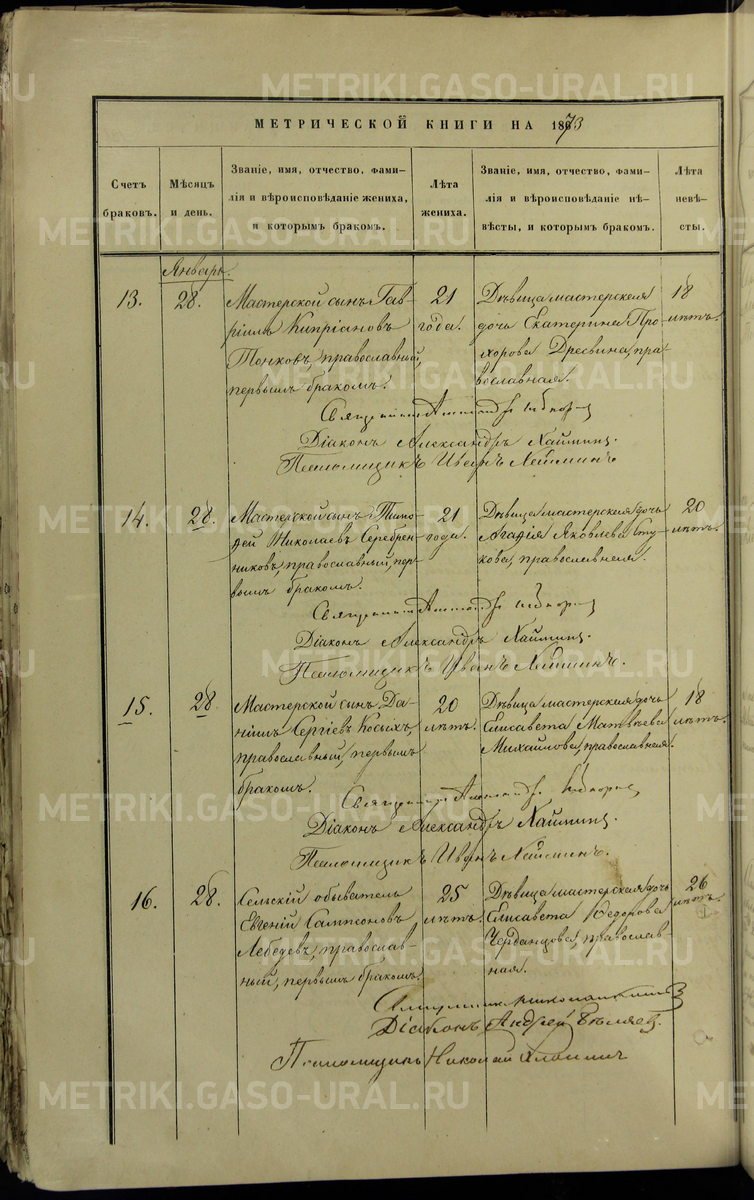 METRIKI.GASO-URAL.RU
МЕТРИЧЕСКОЙ КНИГИ НА 1873
Счетъ браковъ.
Мѣсяцъ и день.
Званіе, имя, отчество, фами-
лія и вѣроисповѣданіе жениха,
и которымъ бракомъ.
Лѣта жениха.
Званіе, имя, отчество, фами-
лія и вѣроисповѣданіе не-
вѣсты, и которымъ бракомъ.
Лѣта невѣ-
сты.
Январь.
13.
28.
Мастерской сынъ Гав-
ріилъ Кипріановъ
Тонковъ, православный,
первымъ бракомъ.
21
года.
Дѣвица мастерская
дочь Екатерина Про-
хорова Дресвина, пра-
вославная.
18
лѣтъ.
Священникъ
Діаконъ Александръ Хаймин.
Псаломщикъ Иванъ
14.
28.
Мастерской сынъ Тимо-
ѳей Николаевъ Серебрен-
никовъ, православный, пер-
вымъ бракомъ.
21
года.
Дѣвица мастерская дочь
Агафія Яковлева Сту-
кова, православная.
20
лѣтъ.
Священникъ
Діаконъ Александръ Хаймин.
Псаломщикъ Иванъ
15.
28
Мастерской сынъ Да-
ніилъ Сергіевъ Косыхъ,
православный, первымъ
бракомъ.
20
лѣтъ.
Дѣвица мастерская дочь
Елисавета Матвѣева
Михайлова, православная.
18
лѣтъ.
Священникъ
Діаконъ Александръ Хаймин.
Псаломщикъ Иванъ
16.
28.
Сельскій обыватель
Евгеній Сампсоновъ
Лебедевъ, православ-
ный, первымъ бракомъ.
25
лѣтъ.
Дѣвица мастерская дочь
Елисавета Ѳедорова
Черданцова, православ-
ная.
26
лѣтъ.
Діаконъ Андрей Бѣляев
Псаломщикъ Николай